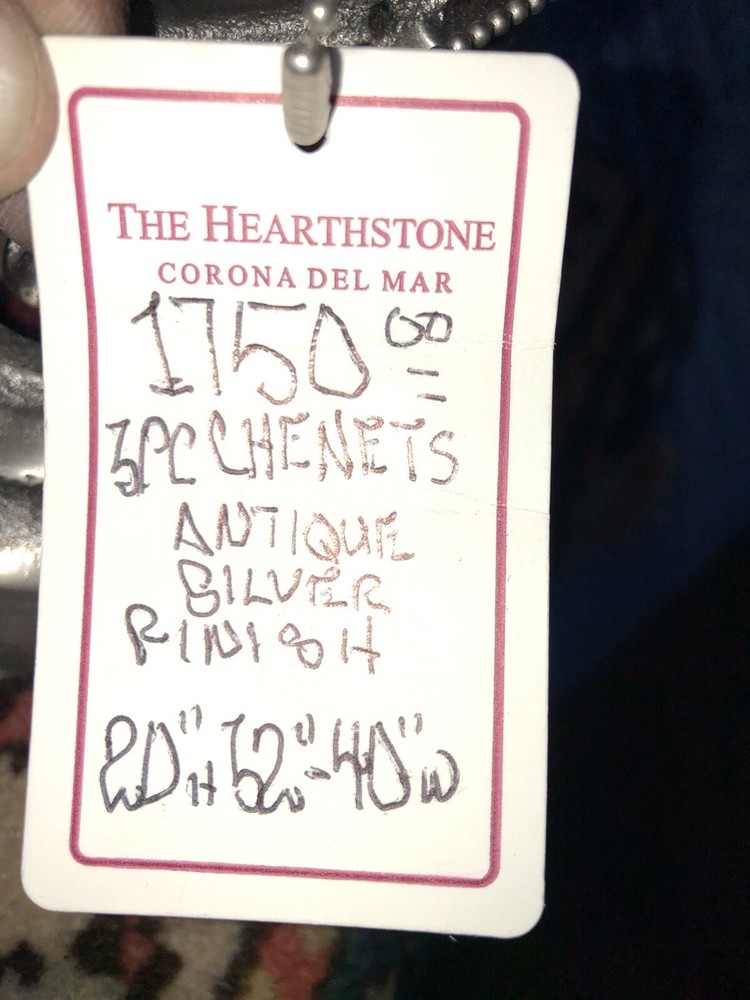 THE HEARTHSTONE
CORONA DEL MAR
1750 00
3PC CHENETS
ANTIQUE
SILVER
FINISH
20"H 32"-40"W